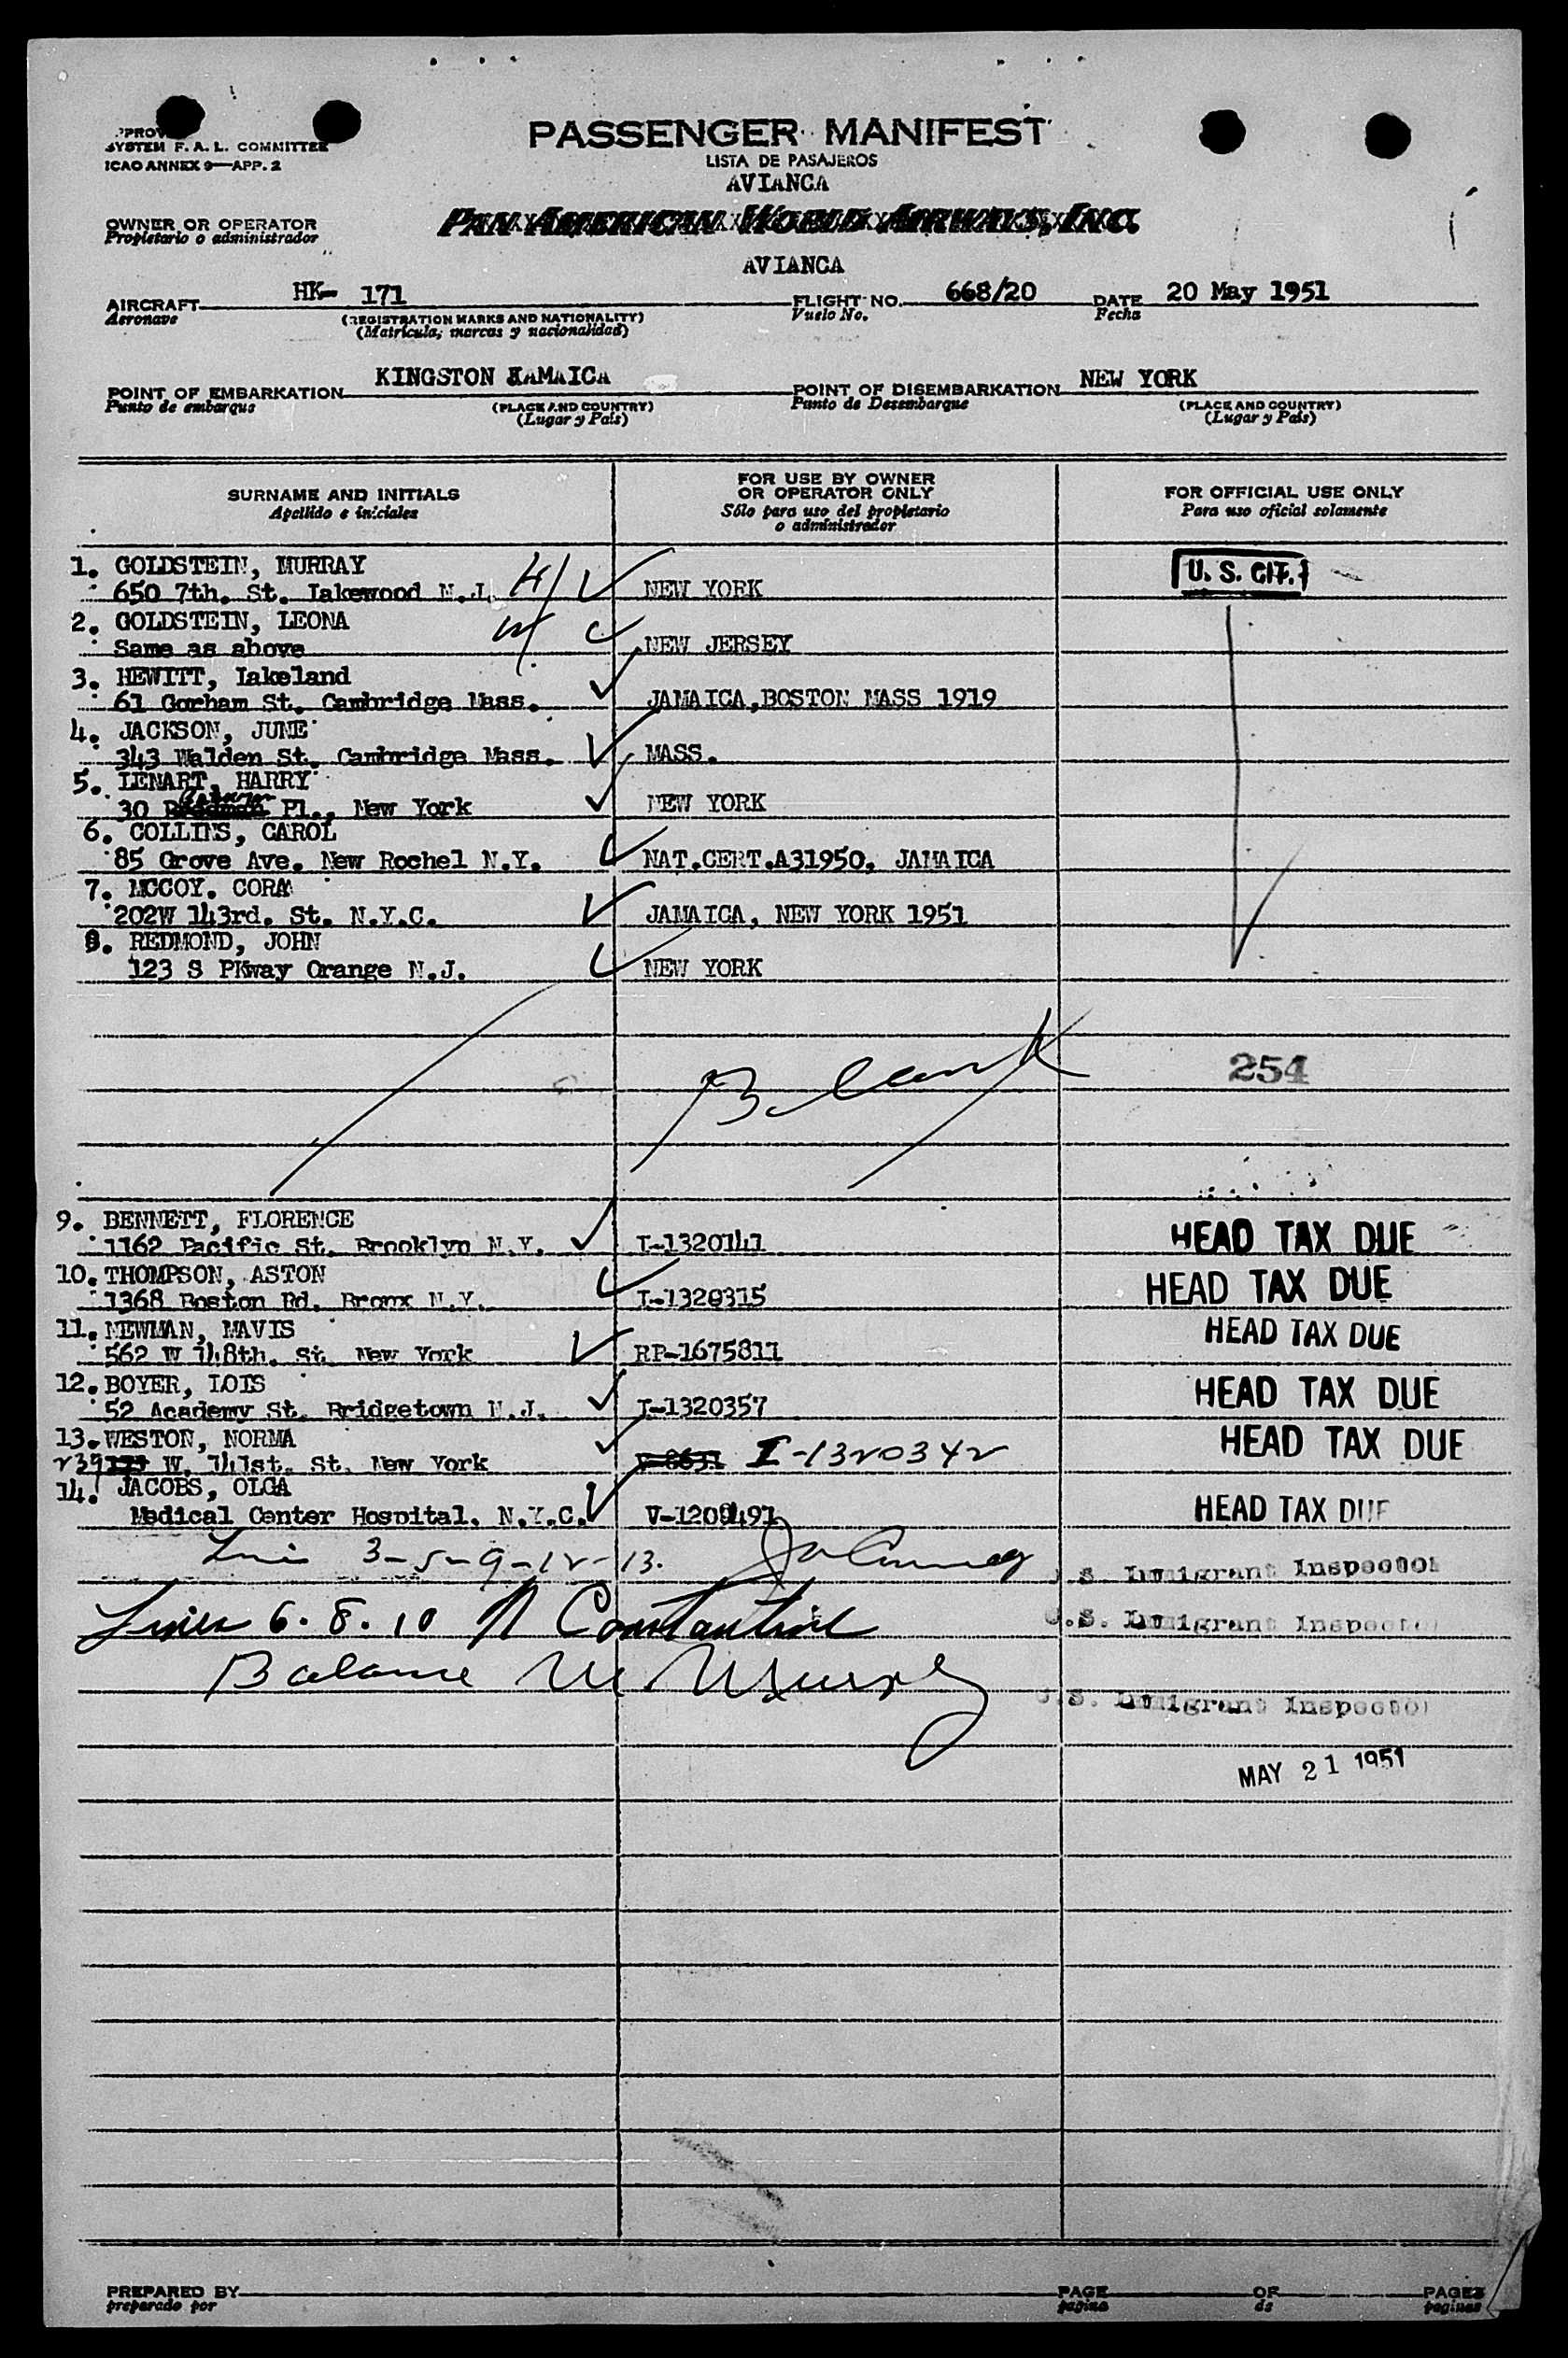 PASSENGER MANIFEST
LISTA DE PASAJEROS
AVIANCA
SYSTEM F. A. L. COMMITTEE
ICAO ANNEX 9—APP. 2
OWNER OR OPERATOR
Propietario o administrador
PAN AMERICAN WORLD AIRWAYS, INC.
AVIANCA
AIRCRAFT HK- 171 FLIGHT NO. 668/20 DATE 20 May 1951
Aeronave (REGISTRATION MARKS AND NATIONALITY) Vuelo No. Fecha
(Matrícula, marcas y nacionalidad)
POINT OF EMBARKATION KINGSTON JAMAICA POINT OF DISEMBARKATION NEW YORK
Punto de embarque (PLACE AND COUNTRY) Punto de Desembarque (PLACE AND COUNTRY)
(Lugar y País) (Lugar y País)
SURNAME AND INITIALS FOR USE BY OWNER OR OPERATOR ONLY FOR OFFICIAL USE ONLY
Apellido e iniciales Sólo para uso del propietario o administrador Para uso oficial solamente
1. GOLDSTEIN, MURRAY U. S. CIT.
650 7th. St. Lakewood N.J. NEW YORK
2. GOLDSTEIN, LEONA
Same as above NEW JERSEY
3. HEWITT, Lakeland
61 Gorham St. Cambridge Mass. JAMAICA,BOSTON MASS 1919
4. JACKSON, JUNE
343 Walden St. Cambridge Mass. MASS.
5. LENART, HARRY
30 Pl., New York NEW YORK
6. COLLINS, CAROL
85 Grove Ave. New Rochel N.Y. NAT.CERT.A31950, JAMAICA
7. MCCOY. CORA
202W 143rd. St. N.Y.C. JAMAICA, NEW YORK 1951
8. REDMOND, JOHN
123 S PKway Orange N.J. NEW YORK
Blank
254
9. BENNETT, FLORENCE
1162 Pacific St. Brooklyn N.Y. I-1320141 HEAD TAX DUE
10. THOMPSON, ASTON
1368 Boston Rd. Bronx N.Y. I-1320315 HEAD TAX DUE
11. NEWMAN, MAVIS
562 W 148th. St. New York RP-1675811 HEAD TAX DUE
12. BOYER, LOIS
52 Academy St. Bridgetown N.J. I-1320357 HEAD TAX DUE
13. WESTON, NORMA
239 W. 141st. St. New York V-8631 I-1320342 HEAD TAX DUE
14. JACOBS, OLGA
Medical Center Hospital. N.Y.C. HEAD TAX DUE
3-5-9-12-13. U.S. Immigrant Inspector
Lines 6. 8. 10 U.S. Immigrant Inspector
Balance U.S. Immigrant Inspector
MAY 21 1951
PREPARED BY PAGE OF PAGES
preparado por pagina de paginas